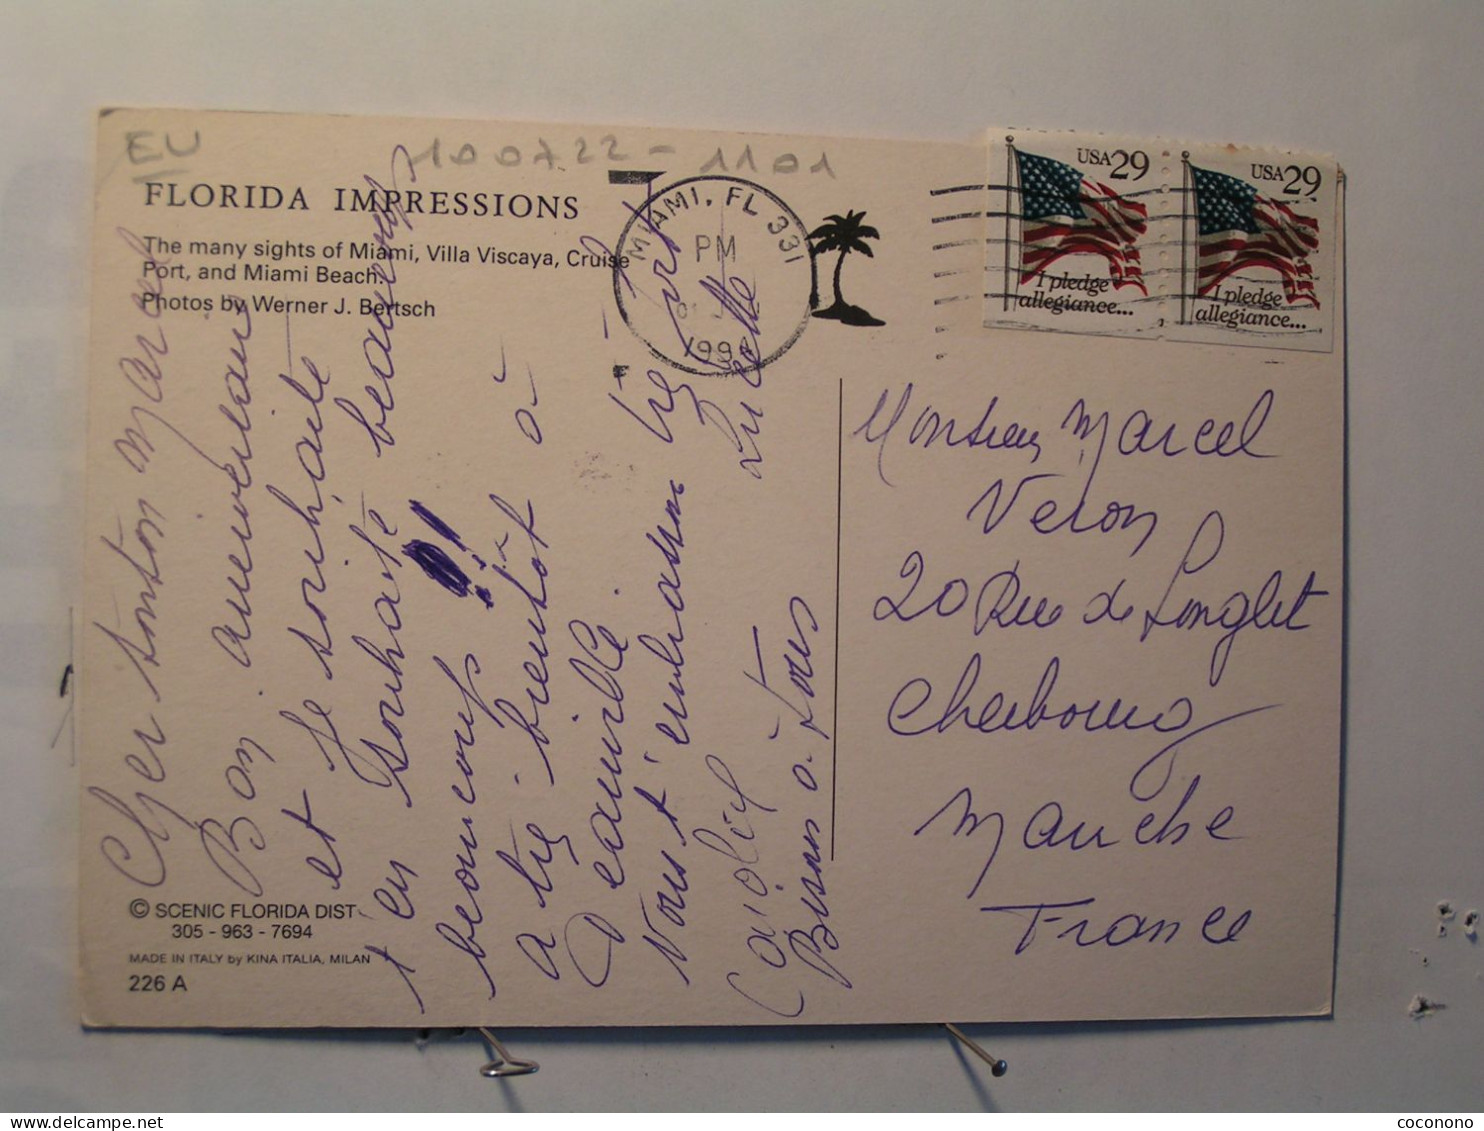 EU
100722 - 1101
FLORIDA IMPRESSIONS
The many sights of Miami, Villa Viscaya, Cruise
Port, and Miami Beach.
Photos by Werner J. Bertsch
MIAMI, FL 331
PM
1994
USA 29
I pledge
allegiance...
USA 29
I pledge
allegiance...
Cher tonton Marcel
Bon anniversaire
et Je souhaite
t'en souhaite beaucoup
beaucoup !
a très bientot à
Vous t'embrassons très fort
Lucette
Bisous à tous
Monsieur Marcel
Veron
20 Rue de Longlet
Cherbourg
Manche
France
© SCENIC FLORIDA DIST
305 - 963 - 7694
MADE IN ITALY by KINA ITALIA, MILAN
226 A
coconono